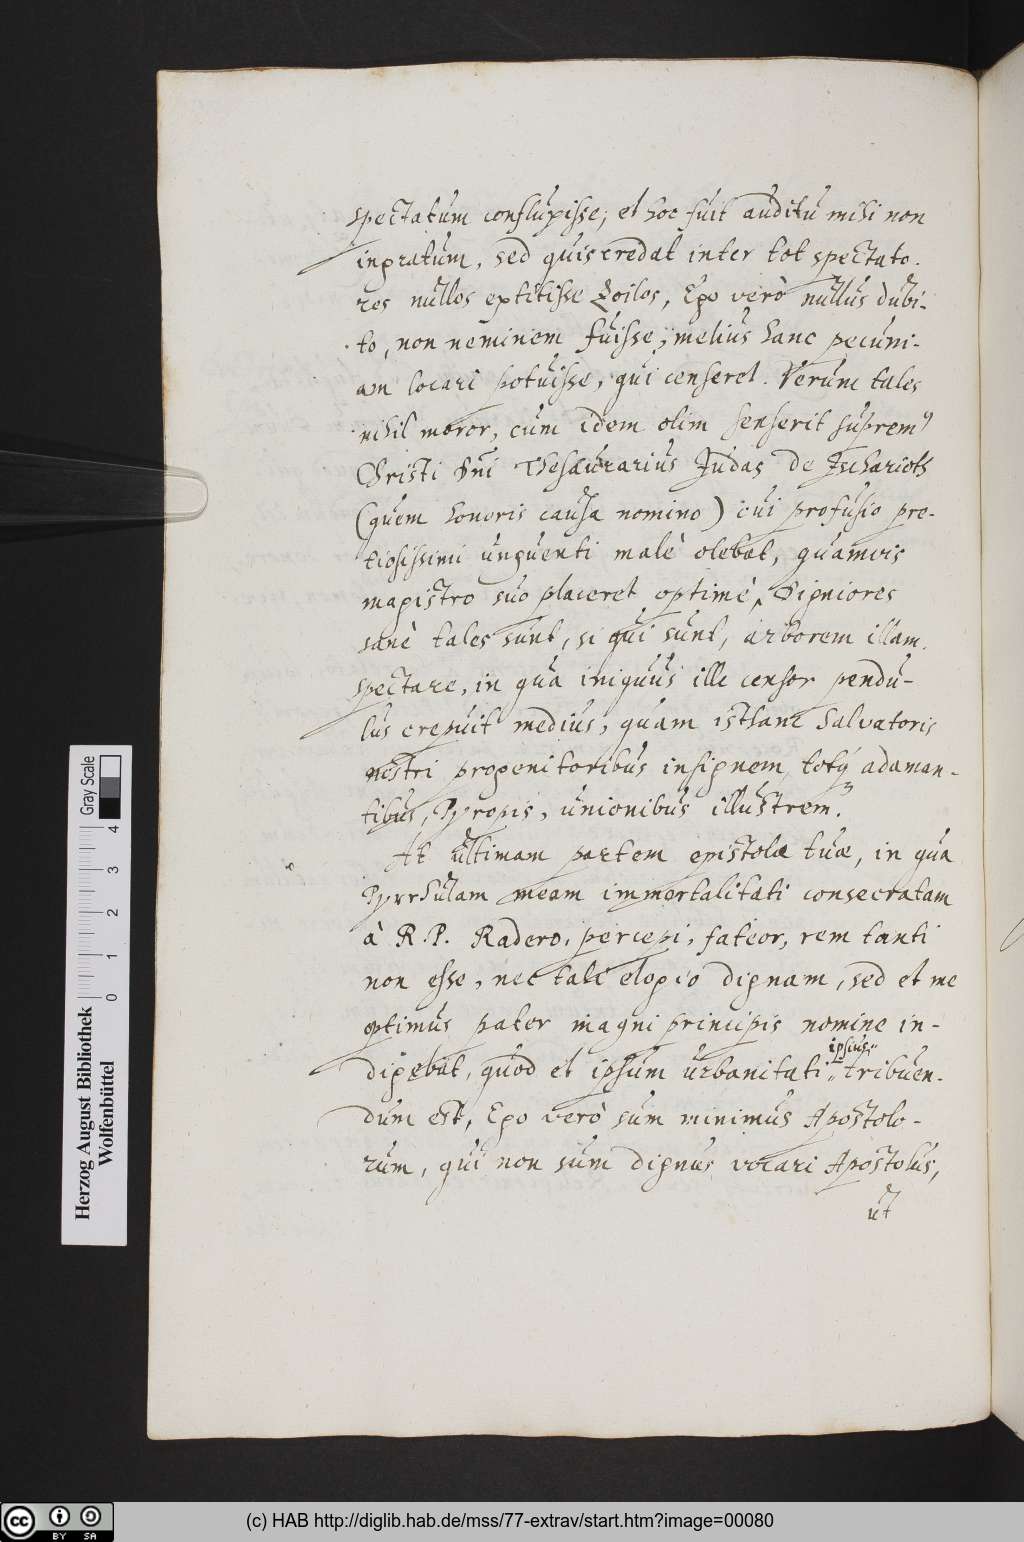 spectatum confluxisse, et hoc fuit auditu mihi non
ingratum, sed quis credat inter tot spectato-
res nullos extitisse Zoilos, Ego verò nullus dubi-
to, non neminem fuisse, melius hanc pecuni-
am locari potuisse, qui censeret. Verum tales
nihil moror, cum idem olim senserit suprem9
Christi Dni Thesaurarius Judas de Ischarioth
(quem honoris causa nomino) cui profusio pre-
tiosissimi unguenti malè olebat, quamvis
magistro suo placeret optimè, Digniores
sanè tales sunt, si qui sunt, arborem illam
spectare, in qua iniquus ille censor pendu-
lus crepuit medius, quam isthanc Salvatoris
nostri progenitoribus insignem, totq́ adaman-
tibus, Pyropis, unionibus illustrem.
At ultimam partem epistolæ tuæ, in qua
Pyrrhulam meam immortalitati consecratam
à R. P. Radero, percepi, fateor, rem tanti
non esse, nec tali elogio dignam, sed et me
optimus pater magni principis nomine in-
digebat, quod et ipsum urbanitati ipsius tribuen-
dum est, Ego verò sum minimus Apostolo-
rum, qui non sum dignus vocari Apostolus,
ut
Herzog August Bibliothek
Wolfenbüttel
Gray Scale
0 1 2 3 4
cc BY SA
(c) HAB http://diglib.hab.de/mss/77-extrav/start.htm?image=00080